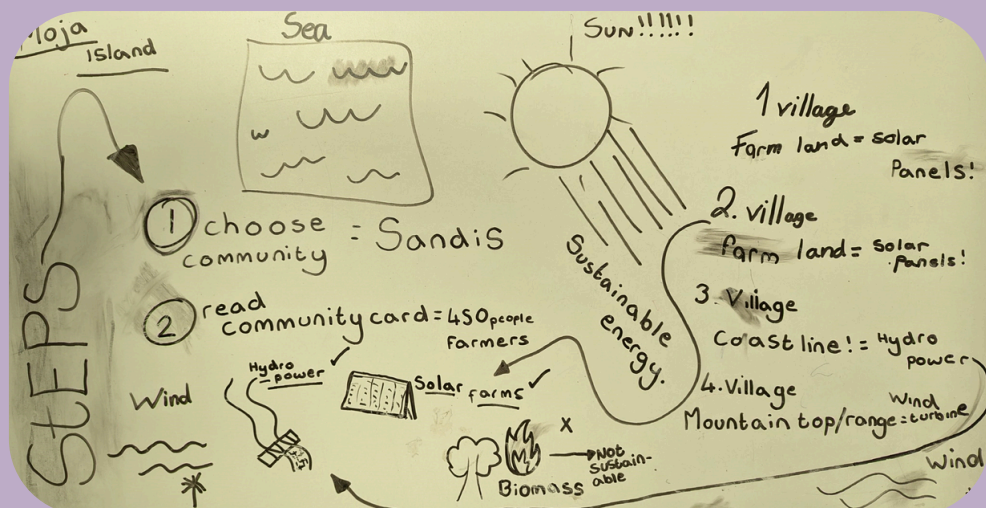 Moja
Island
Sea
Sun!!!!!!
StEPS
1 choose
community
= Sandis
2 read
community card = 450 people
farmers
Wind
Hydro
power
Solar
farms
Biomass
x
Not
sustain-
able
Sustainable
energy.
1 village
Farm land = solar
Panels!
2. village
farm land = solar
panels!
3. Village
Coastline! = Hydro
power
4. Village
Mountain top/range = Wind
turbine
Wind